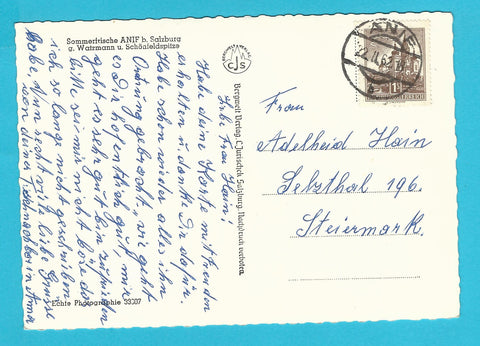 Sommerfrische ANIF b. Salzburg
g. Watzmann u. Schönfeldspitze
CJS
Bergwelt Verlag, C. Jurischek, Salzburg, Nachdruck verboten.
Echte Photographie 33307
ANIF
Liebe Frau Hain!
Habe deine Karte mit Freuden
erhalten u. danke Dir dafür.
Habe schon wieder alles in
Ordnung gebracht, wie geht
es Dir hoffentlich gut, mir
geht es sehr gut bin zufrieden
bitte sei mir nicht böse das
ich so lange nicht geschrieben
habe. Nun recht viele liebe Grüsse
von deiner Anna
Frau
Adelheid Hain
Selzthal 196.
Steiermark.